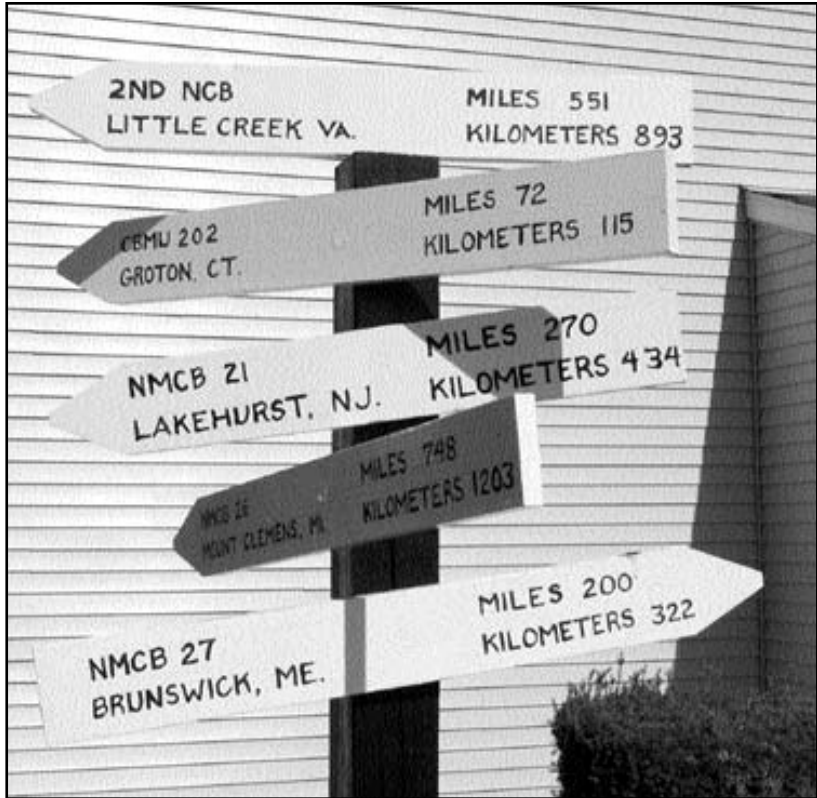 2ND NCB
LITTLE CREEK VA.
MILES 551
KILOMETERS 893
CBMU 202
GROTON, CT.
MILES 72
KILOMETERS 115
NMCB 21
LAKEHURST, NJ.
MILES 270
KILOMETERS 434
NMCB 26
MOUNT CLEMENS, MI.
MILES 748
KILOMETERS 1203
NMCB 27
BRUNSWICK, ME.
MILES 200
KILOMETERS 322